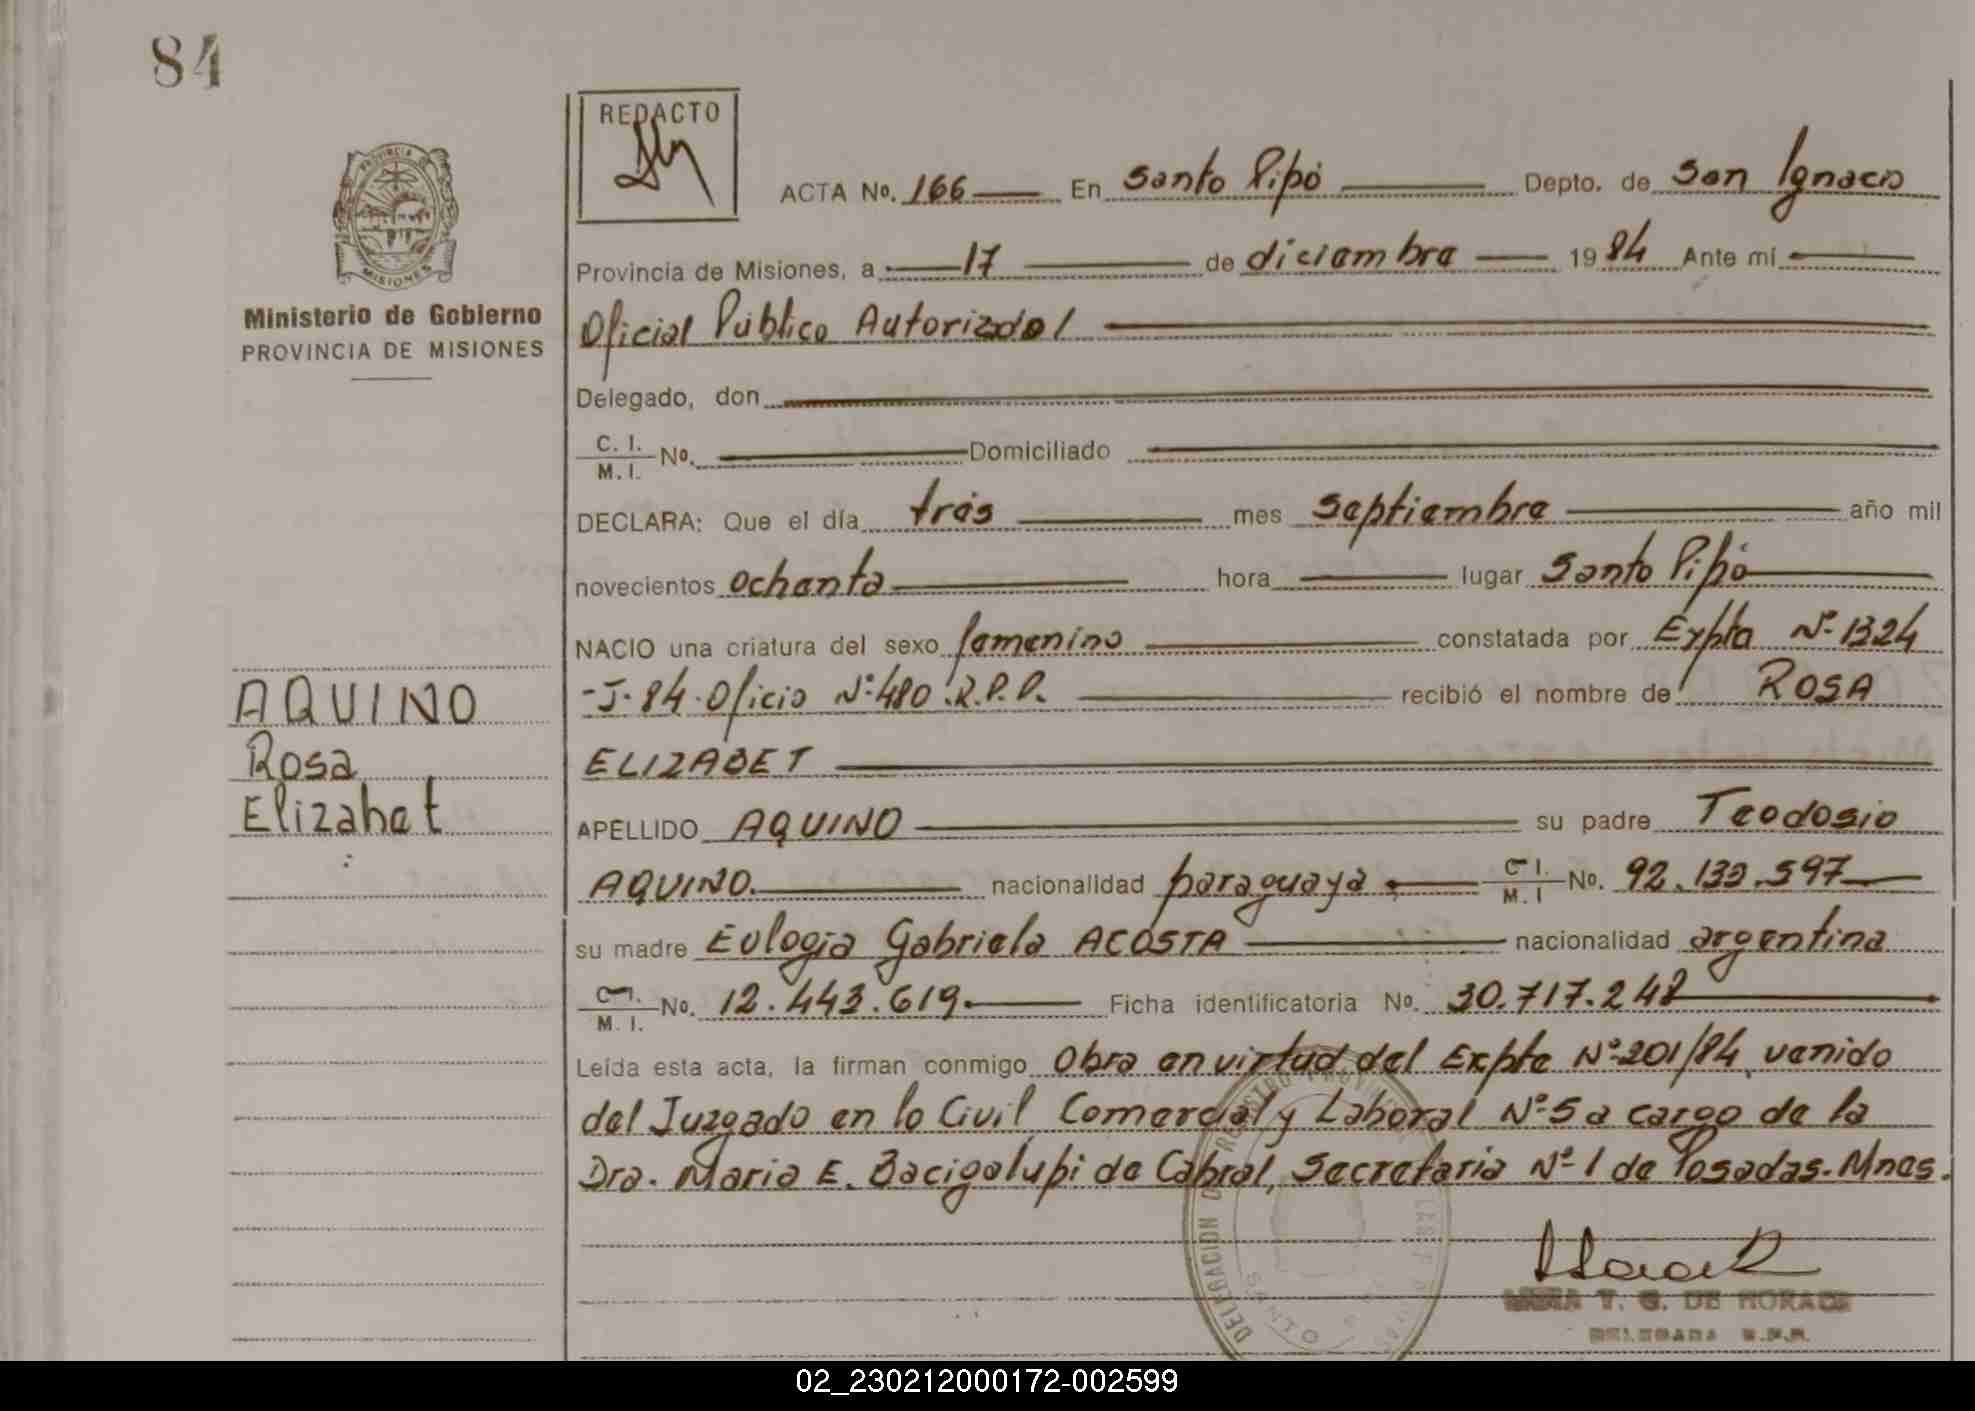 84
REDACTO
ACTA No. 166 En Santo Pipó Depto. de San Ignacio
Provincia de Misiones, a 17 de diciembre 1984 Ante mí
Oficial Público Autorizado
Delegado, don
C. I.
M. I. No. Domiciliado
DECLARA: Que el día tres mes septiembre año mil
novecientos ochenta hora lugar Santo Pipó
NACIO una criatura del sexo femenino constatada por Expte Nº 1324
-J-84-Oficio Nº 480 R.P.P. recibió el nombre de ROSA
ELIZABET
APELLIDO AQUINO su padre Teodosio
AQUINO. nacionalidad paraguaya C. I.
M. I No. 92.133.597
su madre Eulogia Gabriela ACOSTA nacionalidad argentina
C. I.
M. I. No. 12.443.619. Ficha identificatoria No. 30.717.248
Leída esta acta, la firman conmigo Obra en virtud del Expte Nº 201/84, venido
del Juzgado en lo Civil, Comercial y Laboral Nº 5 a cargo de la
Dra. Maria E. Bacigalupi de Cabral, Secretaria Nº 1 de Posadas. Mnes.
T. G. DE MORAES
DELEGADA R.P.P.
DELEGACION
SANTO
PROVINCIA DE
MISIONES
Ministerio de Gobierno
PROVINCIA DE MISIONES
AQUINO
Rosa
Elizabet
02_230212000172-002599